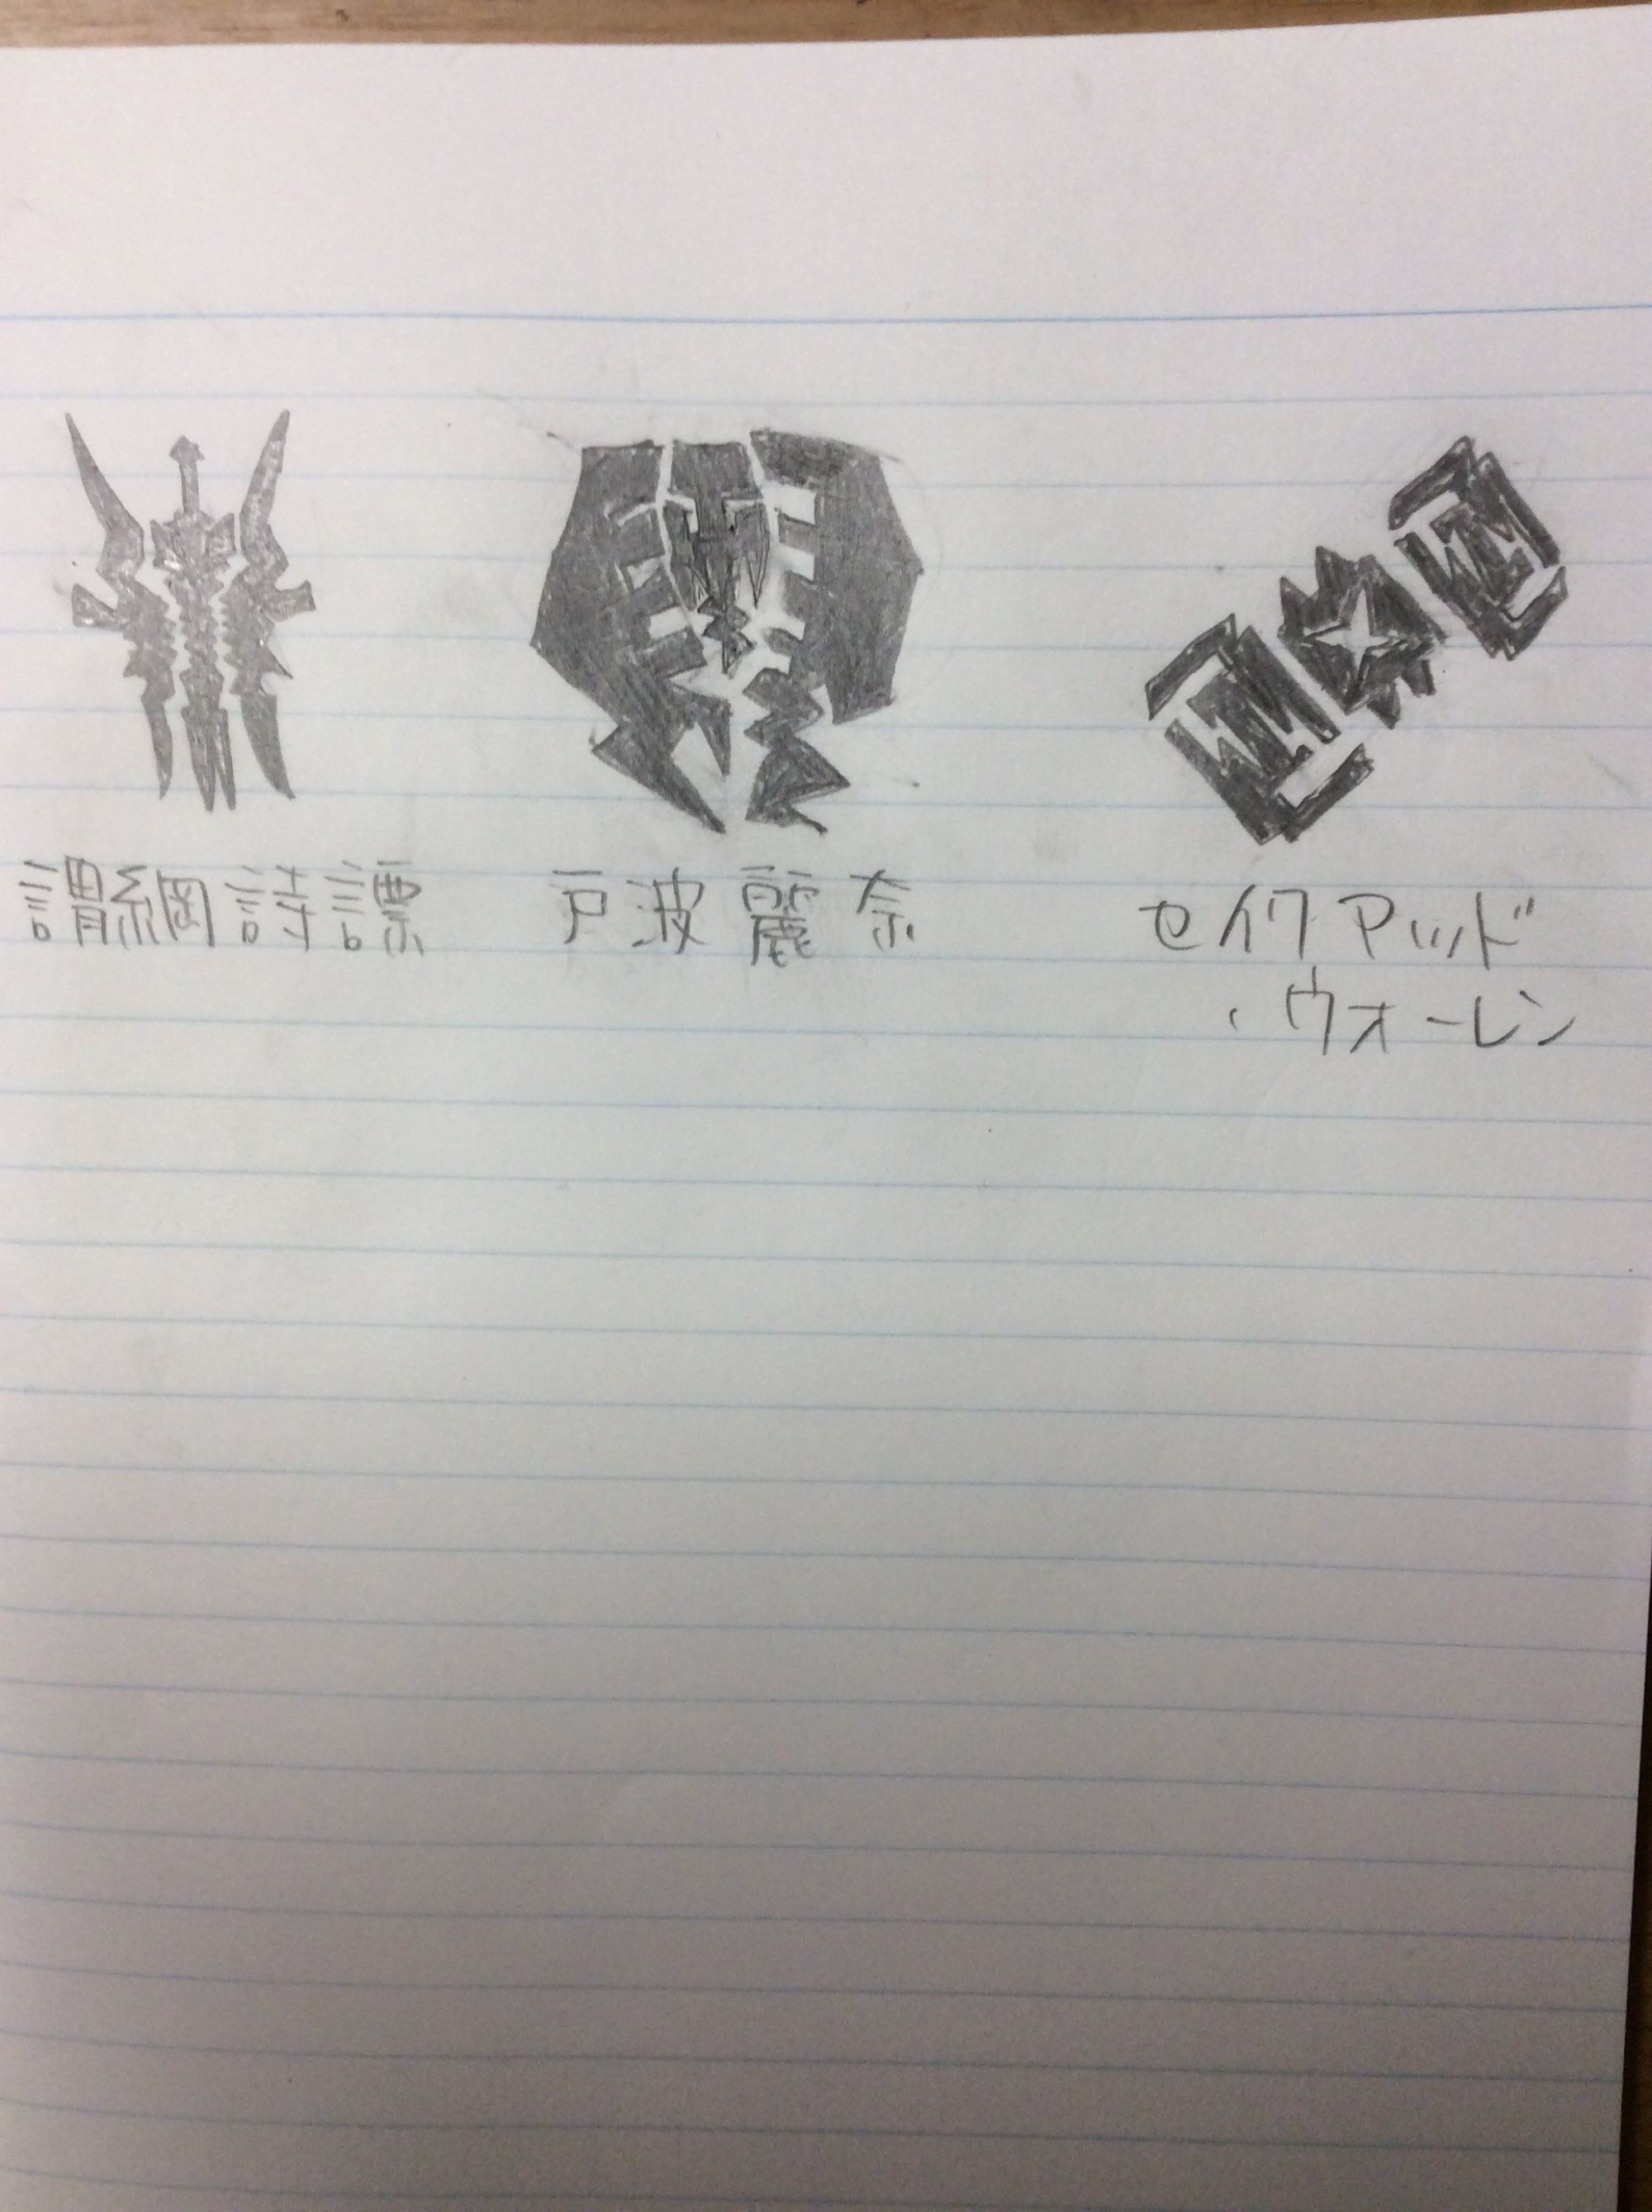 謂綱詩譚
戸波麗奈
セイクアッド
・ウォーレン